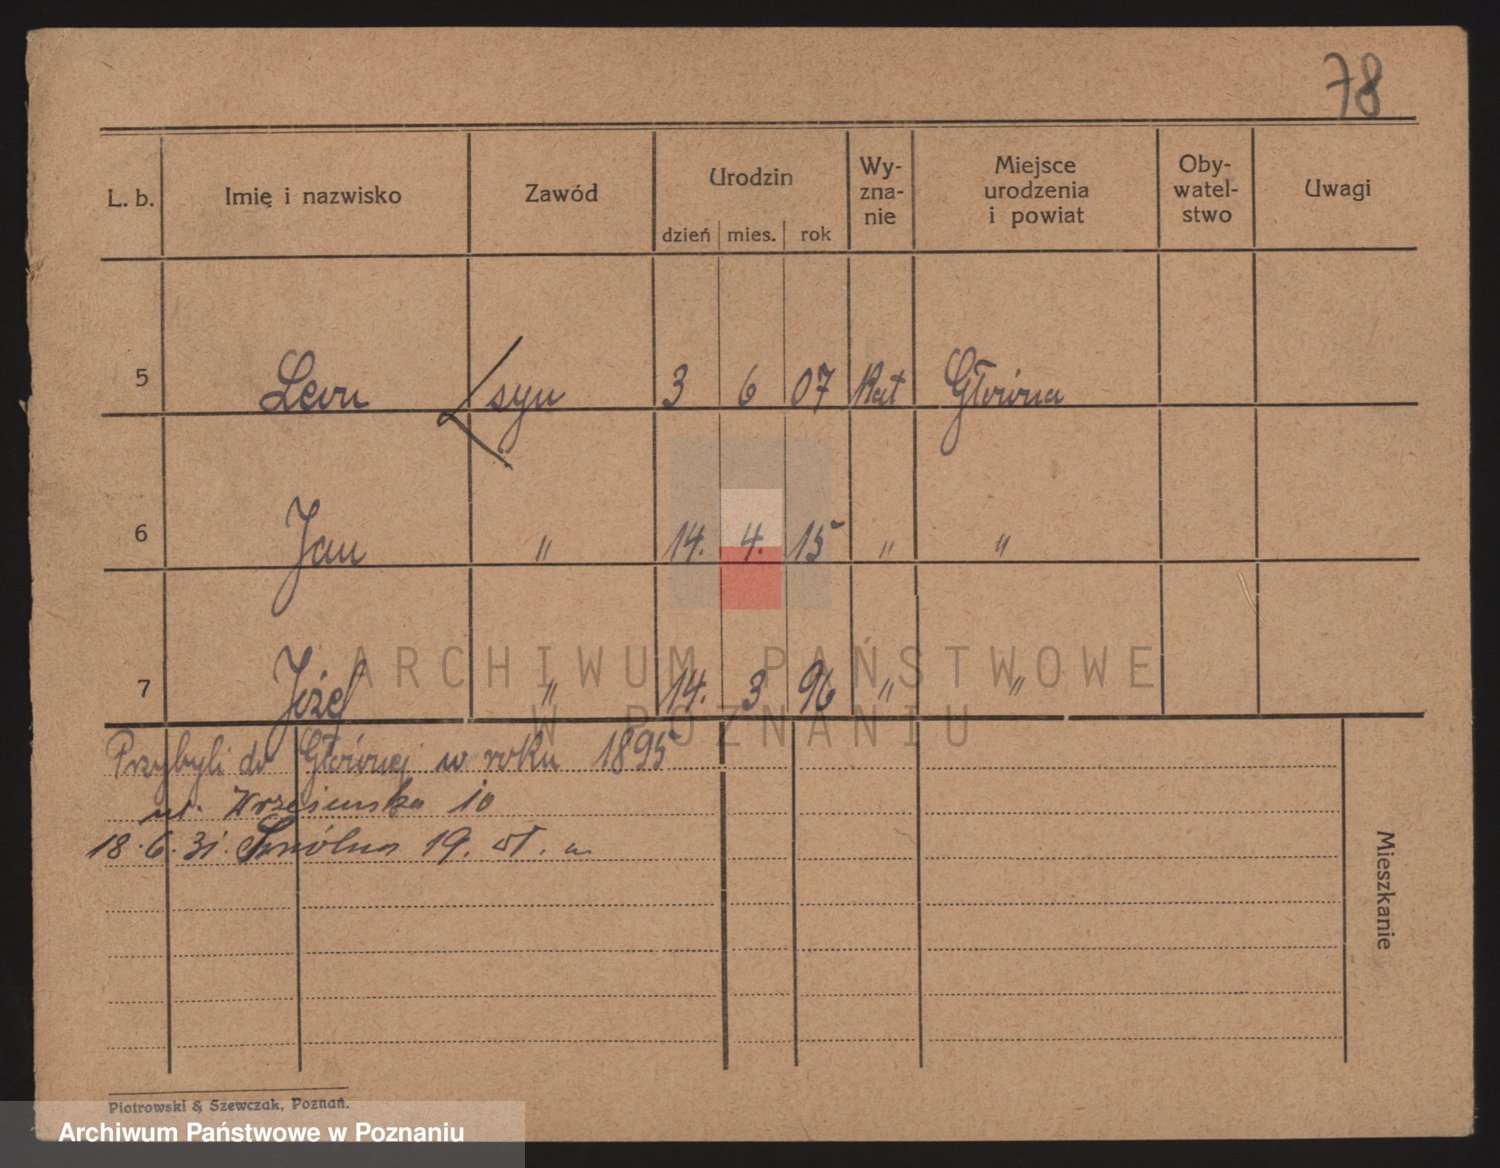 78
L. b. Imię i nazwisko Zawód Urodzin dzień mies. rok Wy-zna-nie Miejsce urodzenia i powiat Oby-watel-stwo Uwagi
5 Leon syn 3 6 07 Kat Główna
6 Jan " 14. 4. 15 " "
7 Józef " 14. 3 96 " "
Przybyli do Głównej w roku 1895
ul. Wrzesińska 10
18.6.31. Smólna 19.
Mieszkanie
Piotrowski & Szewczak, Poznań.
ARCHIWUM PAŃSTWOWE
W POZNANIU
Archiwum Państwowe w Poznaniu